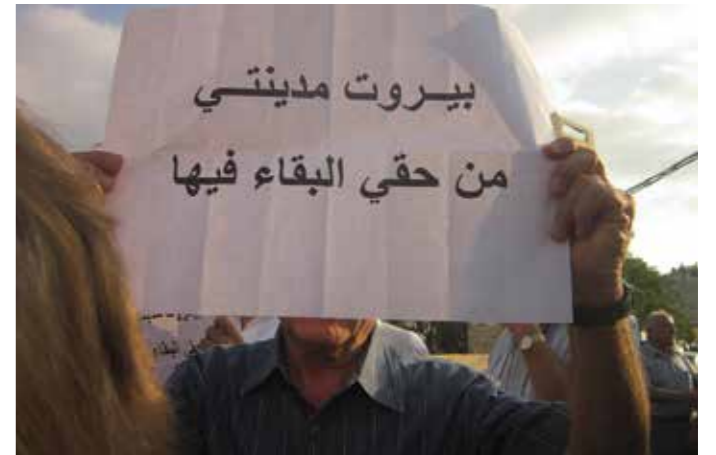 بيـروت مدينتـي
من حقي البقاء فيها